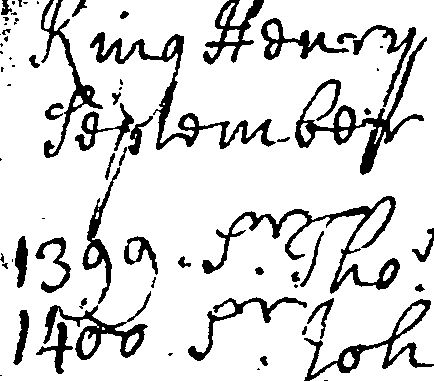 King Henry
September
1399. Sr. Tho.
1400 Sr. Joh